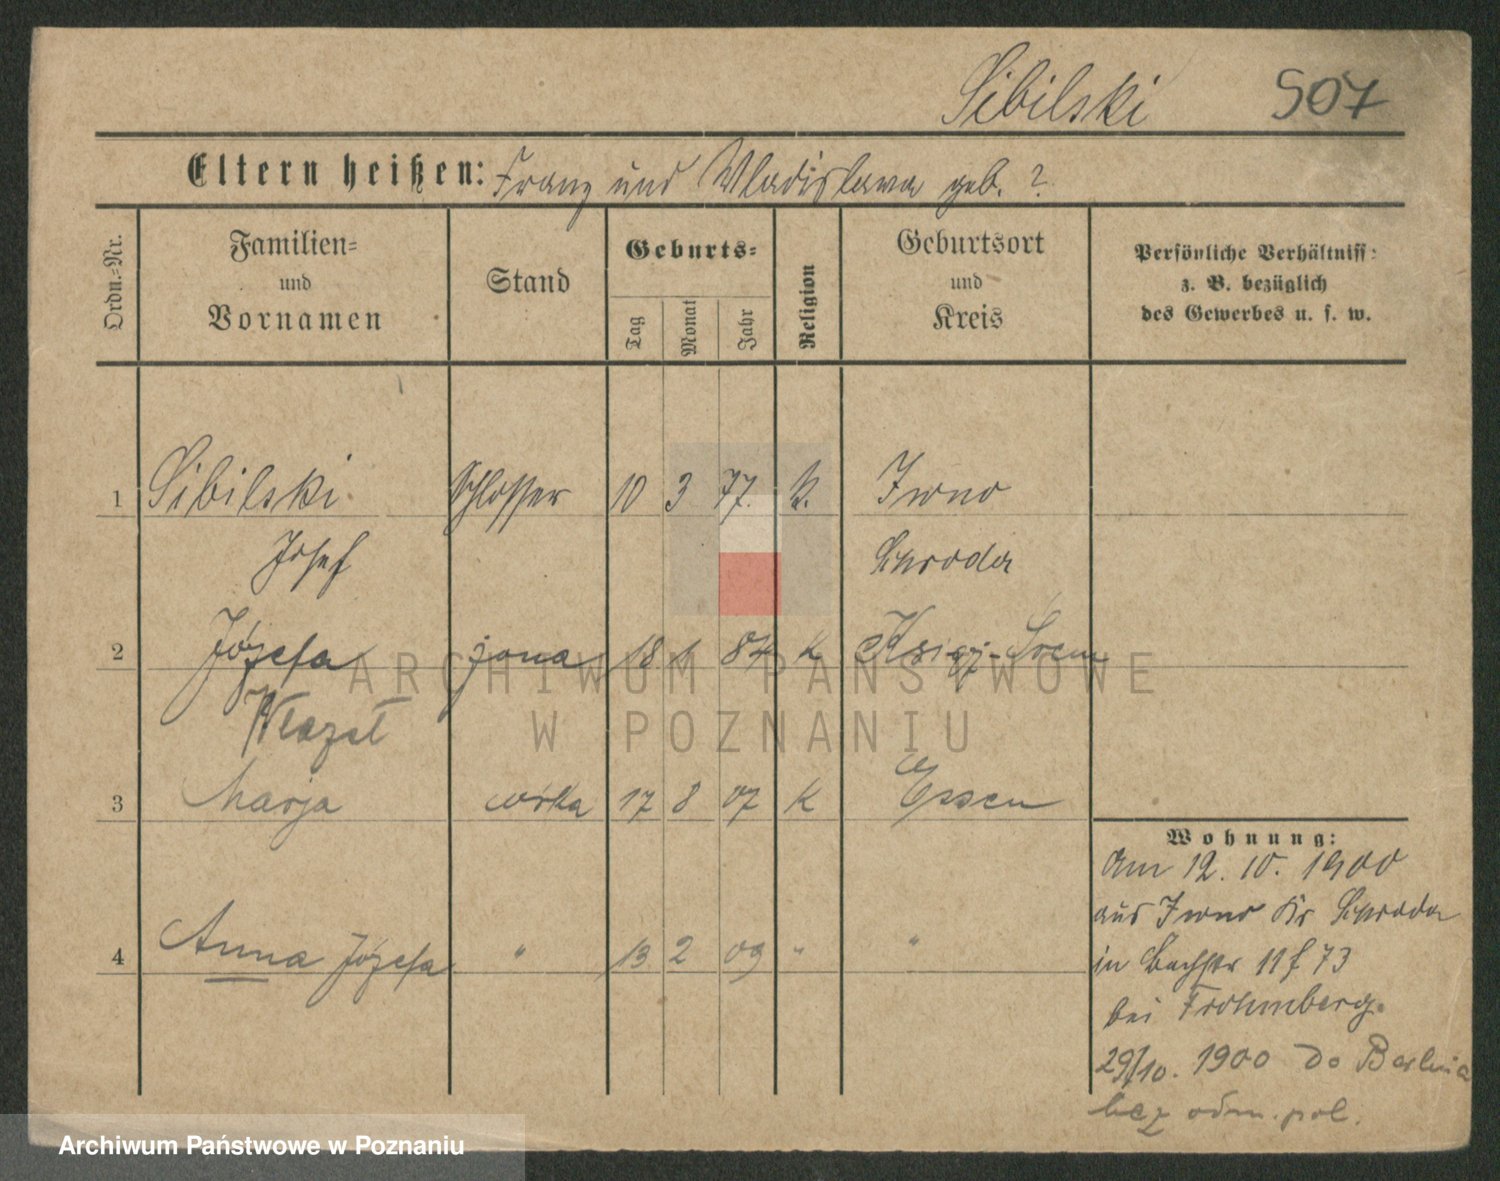 Sibilski 507
Eltern heißen: Franz und Wladislawa geb. ?
Ordn.=Nr.
Familien=
und
Vornamen
Stand
Geburts=
Tag Monat Jahr
Religion
Geburtsort
und
Kreis
Persönliche Verhältniss:
z. B. bezüglich
des Gewerbes u. s. w.
1 Sibilski Schlosser 10 3 77. k. Iwno
Josef Schroda
2 Józefa żona 18 1 84 k Książ-Śrem
ARCHIWUM PAŃSTWOWE
W POZNANIU
3 Marja córka 17 8 07 k Essen
Wohnung:
Am 12. 10. 1900
aus Iwno Kr Schroda
4 Anna Józefa " 13 2 09 " "
in Bachstr 11 f 73
bei Frohmberg.
29/10. 1900 do Berlina
bez odm. pol.
Archiwum Państwowe w Poznaniu